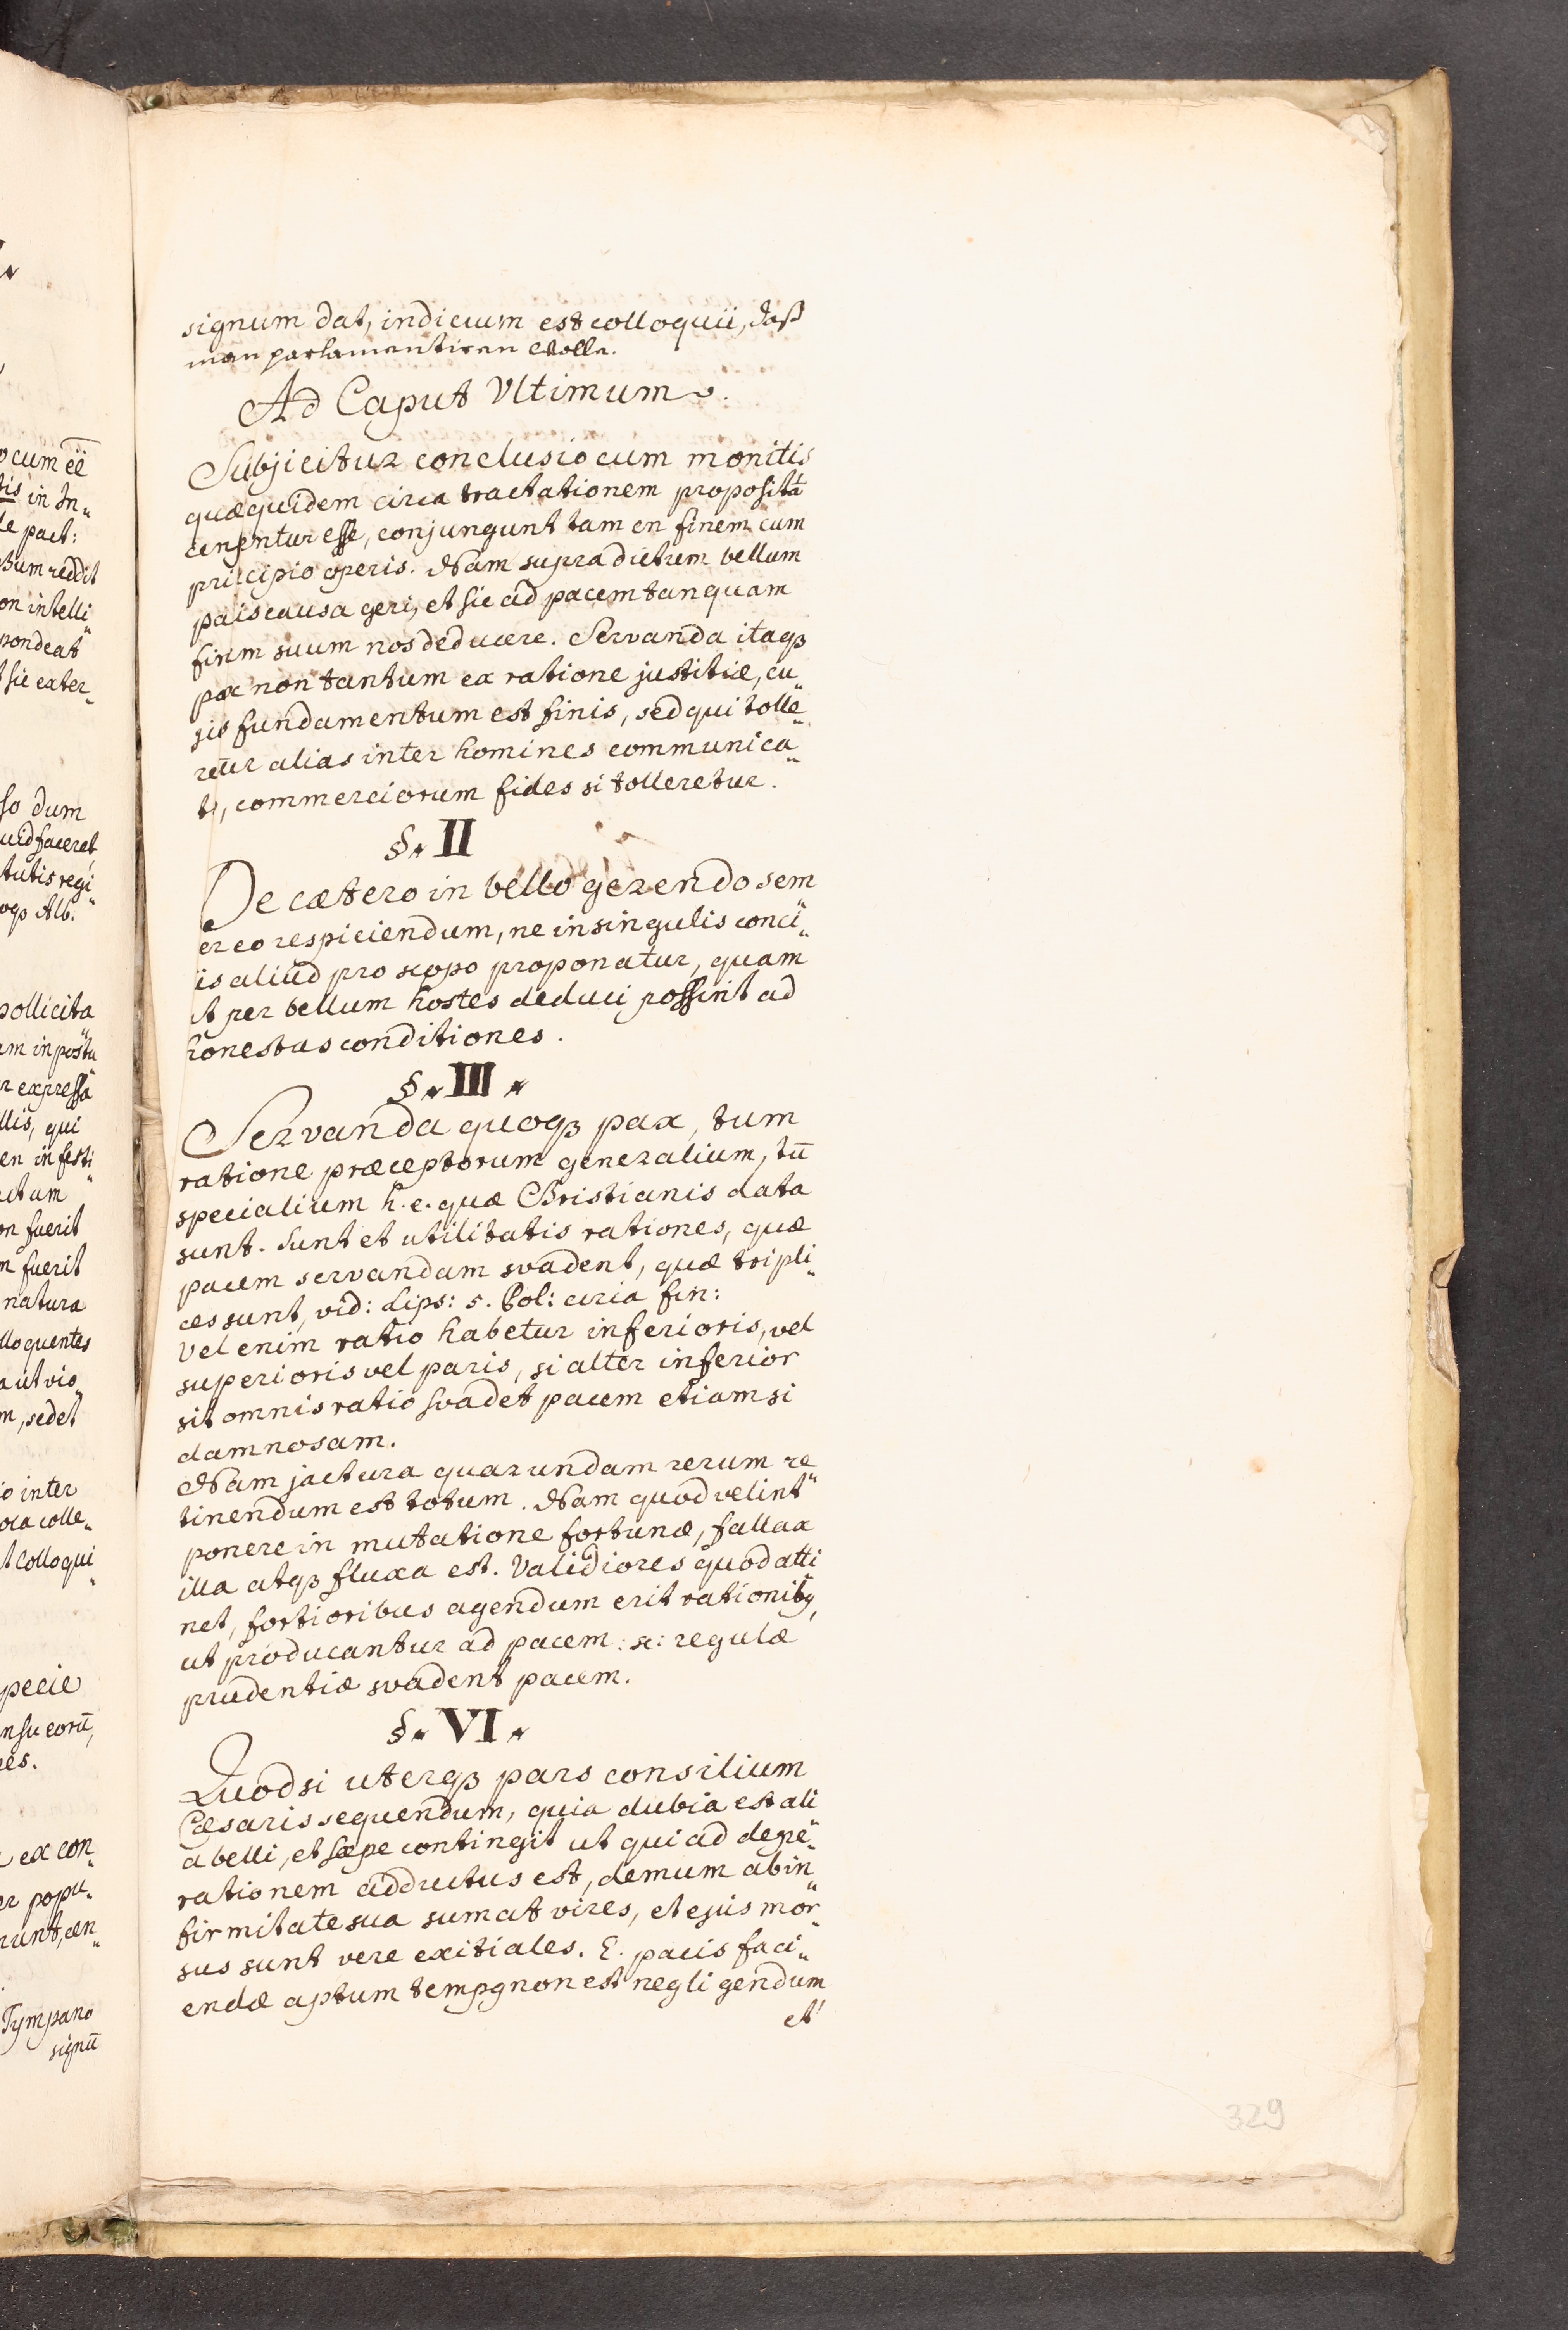 signum dat, indicium est colloquii, daß
man parlamentiren wolle.
Ad Caput Ultimum.
Subjicitur conclusio cum monitis
quæquidem circa tractationem proposita
censentur esse, conjungunt tamen finem cum
pricipio operis. Nam supra dictum bellum
pacis causa geri, et sic ad pacem tanquam
finem suum nos deducere. Servanda itaqꝫ
pax non tantum ex ratione justitiæ, cu„
jus fundamentum est finis, sed qui tolle„
retur alias inter homines communica„
ti, commerciorum fides si tolleretur.
§. II
De cætero in bello gerendo sem„
er eo respiciendum, ne in singulis conci„
is aliud pro scopo proponatur, quam
ut per bellum hostes deduci possint ad
honestas conditiones.
§. III.
Servanda quoqꝫ pax, tum
ratione præceptorum generalium, tū
specialium h. e. quæ Christianis data
sunt. Sunt et utilitatis rationes, quæ
pacem servandam svadent, quæ tripli„
ces sunt, vid: Lips: 5. Pol: circa fin:
Vel enim ratio habetur inferioris, vel
superioris vel paris, si alter inferior
sit omnis ratio svadet pacem etiamsi
damnosam.
Nam jactura quarundam rerum re„
tinendum est totum. Nam quod velint
ponere in mutatione fortunæ, fallax
illa atqꝫ fluxa est. Validiores quod atti„
net, fortioribus agendum erit rationibꝰ,
ut producantur ad pacem: sc: regulæ
prudentiæ svadent pacem.
§. VI.
Quodsi uterqꝫ pars consilium
Cæsaris sequendum, quia dubia est ali„
a belli, et sæpe contingit ut qui ad despe„
rationem adductus est, demum ab in„
firmitate sua sumat vires, et ejus mor„
sus sunt vere exitiales. E. pacis faci„
endæ aptum tempꝰ non est negligendum
et
329